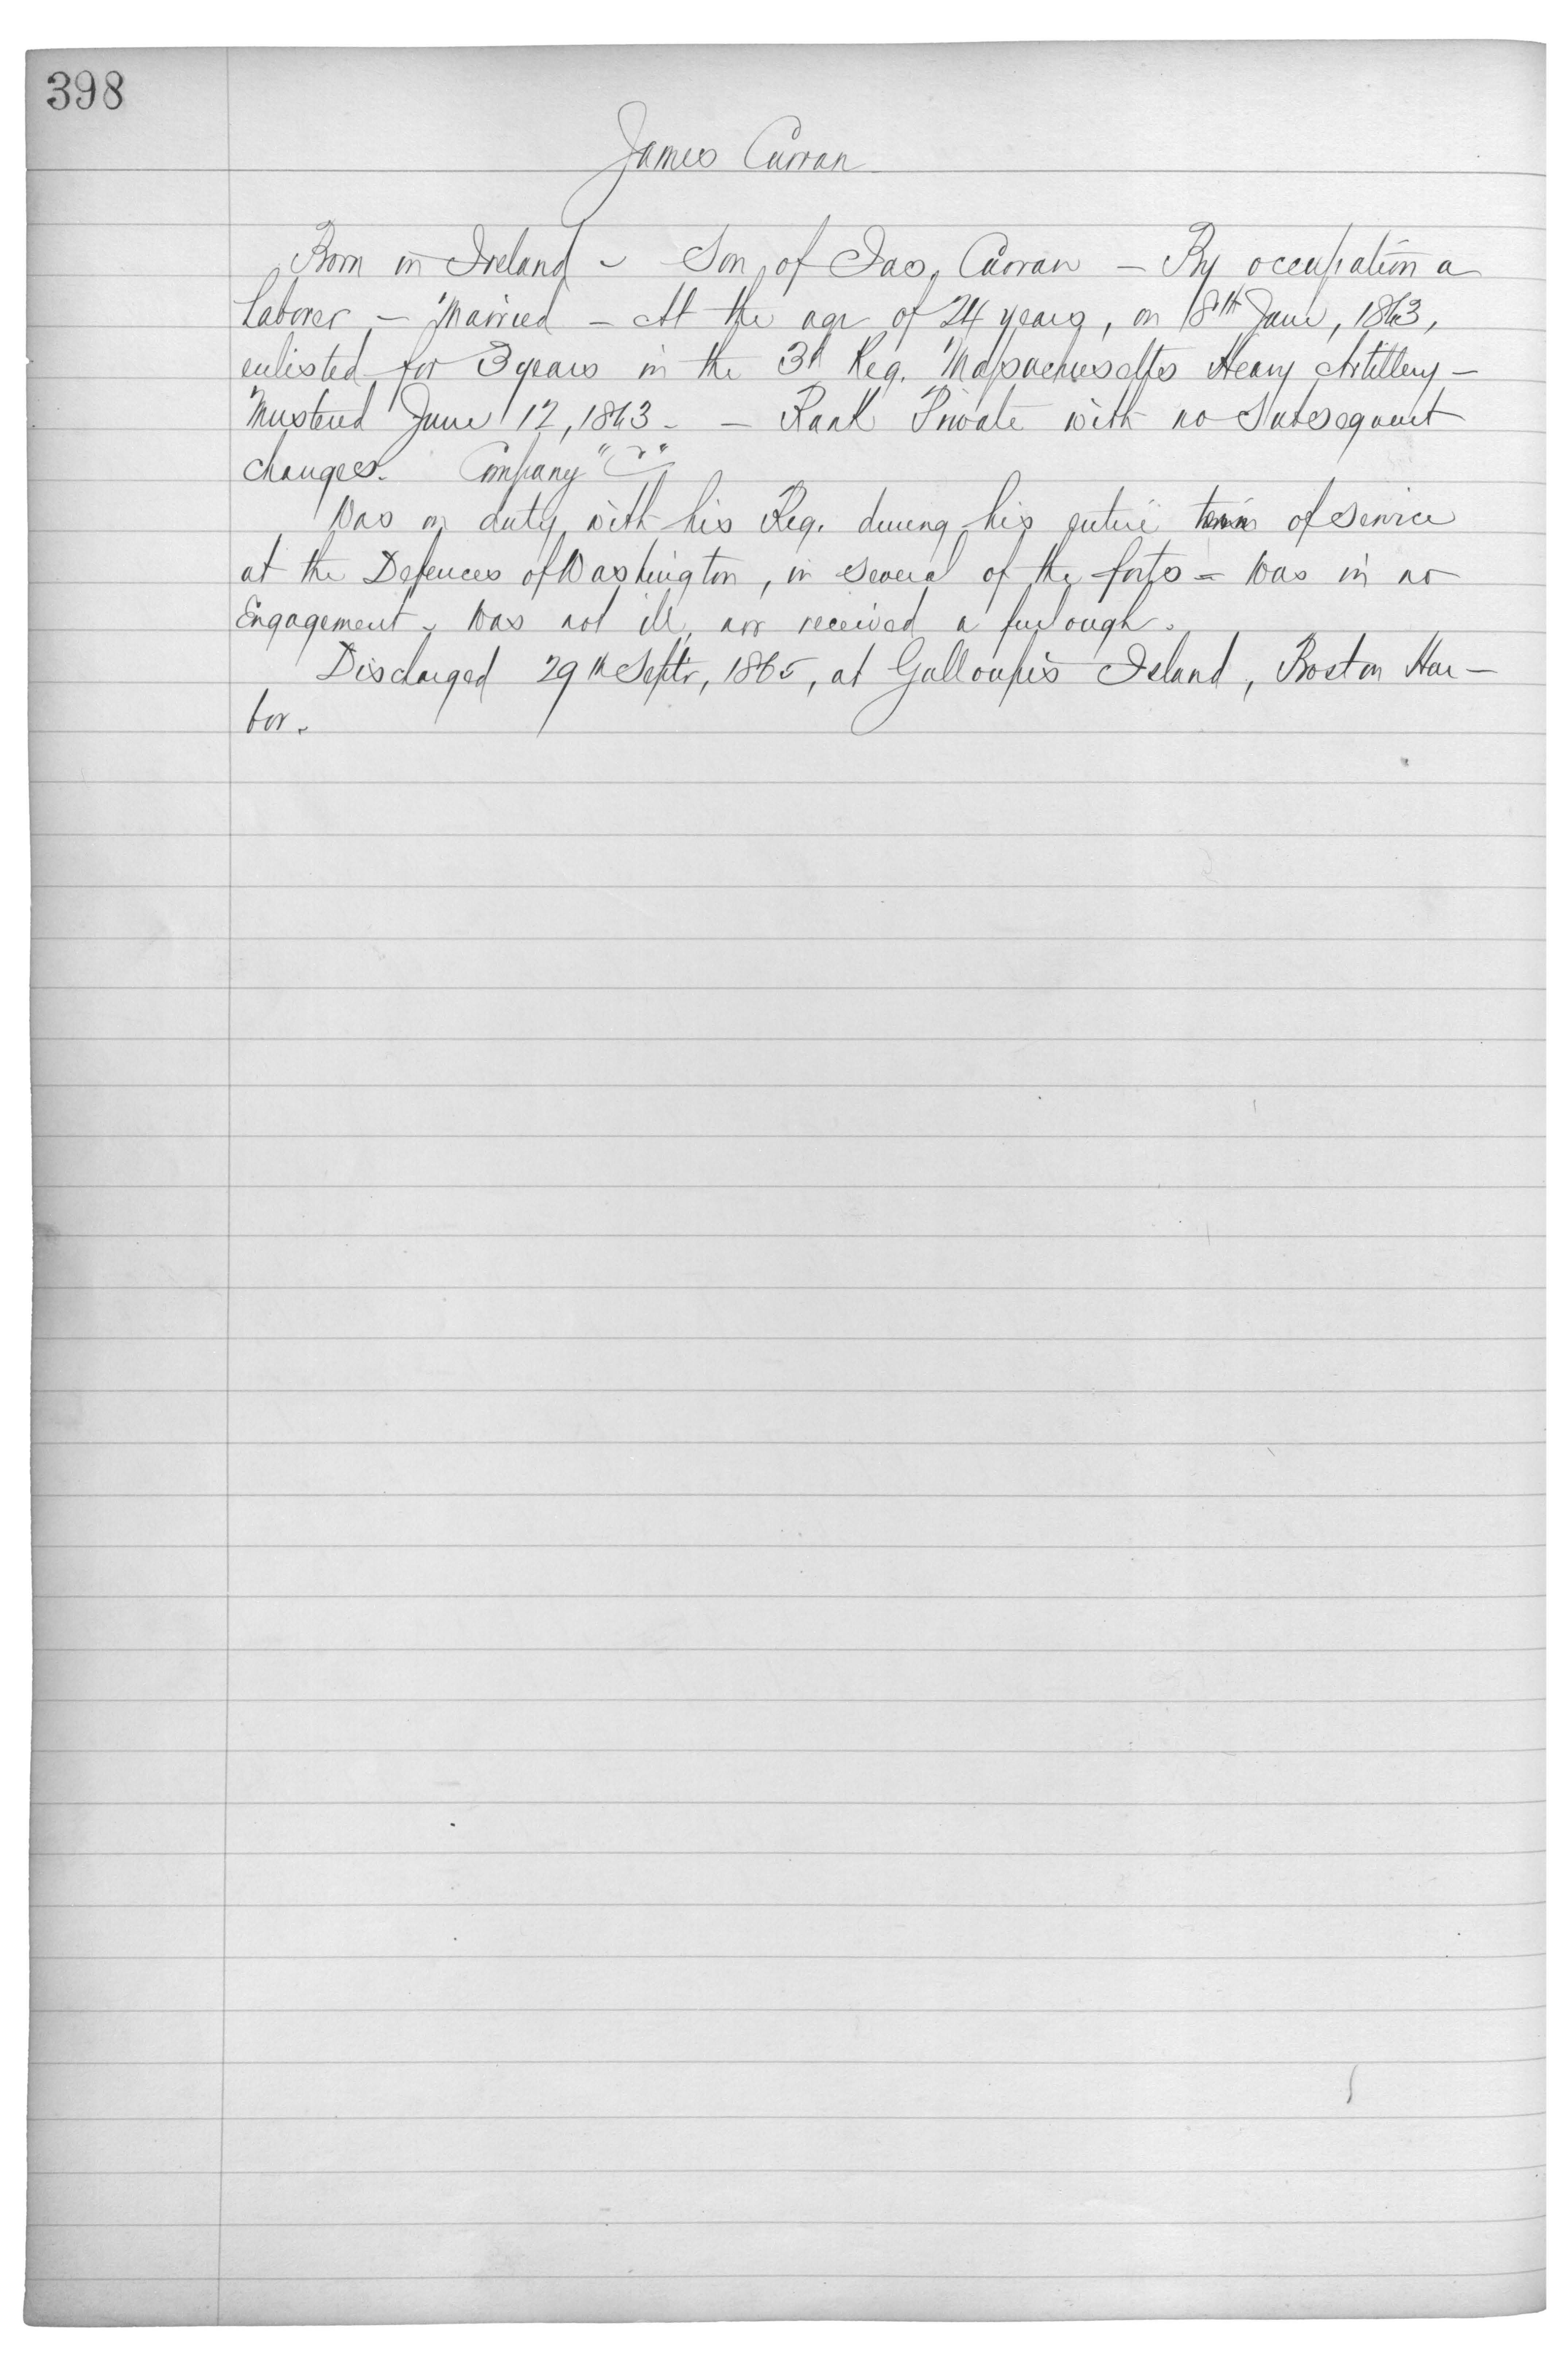 398
James Curran
Born in Ireland - Son of Jas. Curran - By occupation a
laborer - Married - At the age of 24 years, on 8th June, 1863,
enlisted for 3 years in the 3d Reg. Massachusetts Heavy Artillery -
Mustered June 12, 1863 - - Rank Private with no subsequent
changes. Company "C"
Was on duty with his Reg. during his entire term of service
at the Defences of Washington, in several of the forts - Was in no
Engagement - Was not ill, nor received a furlough.
Discharged 29th Septr, 1865, at Galloupes Island, Boston Har-
bor.